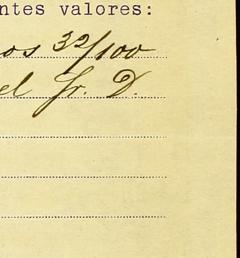 ntes valores:
os 32/100
el Sr. D.